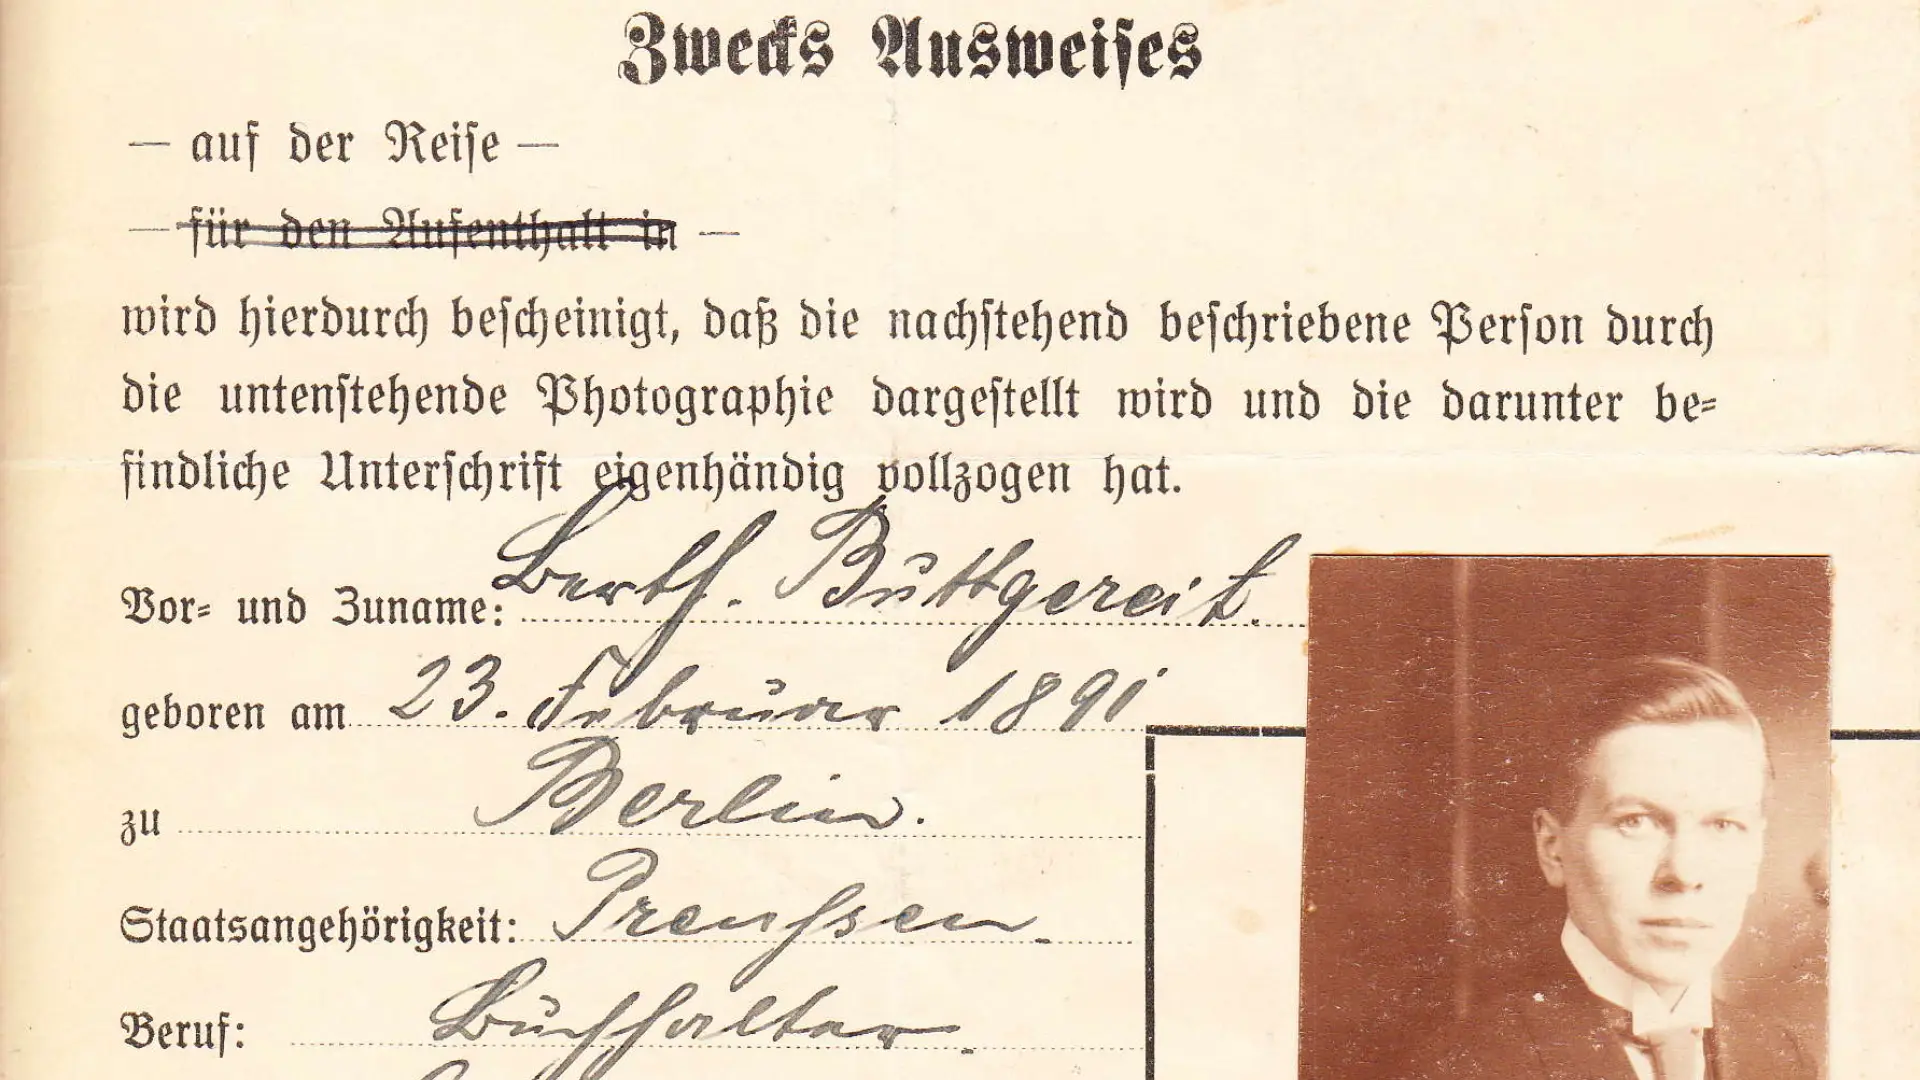 Zwecks Ausweises
— auf der Reise —
— für den Aufenthalt in —
wird hierdurch bescheinigt, daß die nachstehend beschriebene Person durch
die untenstehende Photographie dargestellt wird und die darunter be-
findliche Unterschrift eigenhändig vollzogen hat.
Vor- und Zuname: Berth. Büttgereit.
geboren am 23. Februar 1891
zu Berlin.
Staatsangehörigkeit: Preussen.
Beruf: Buchhalter.